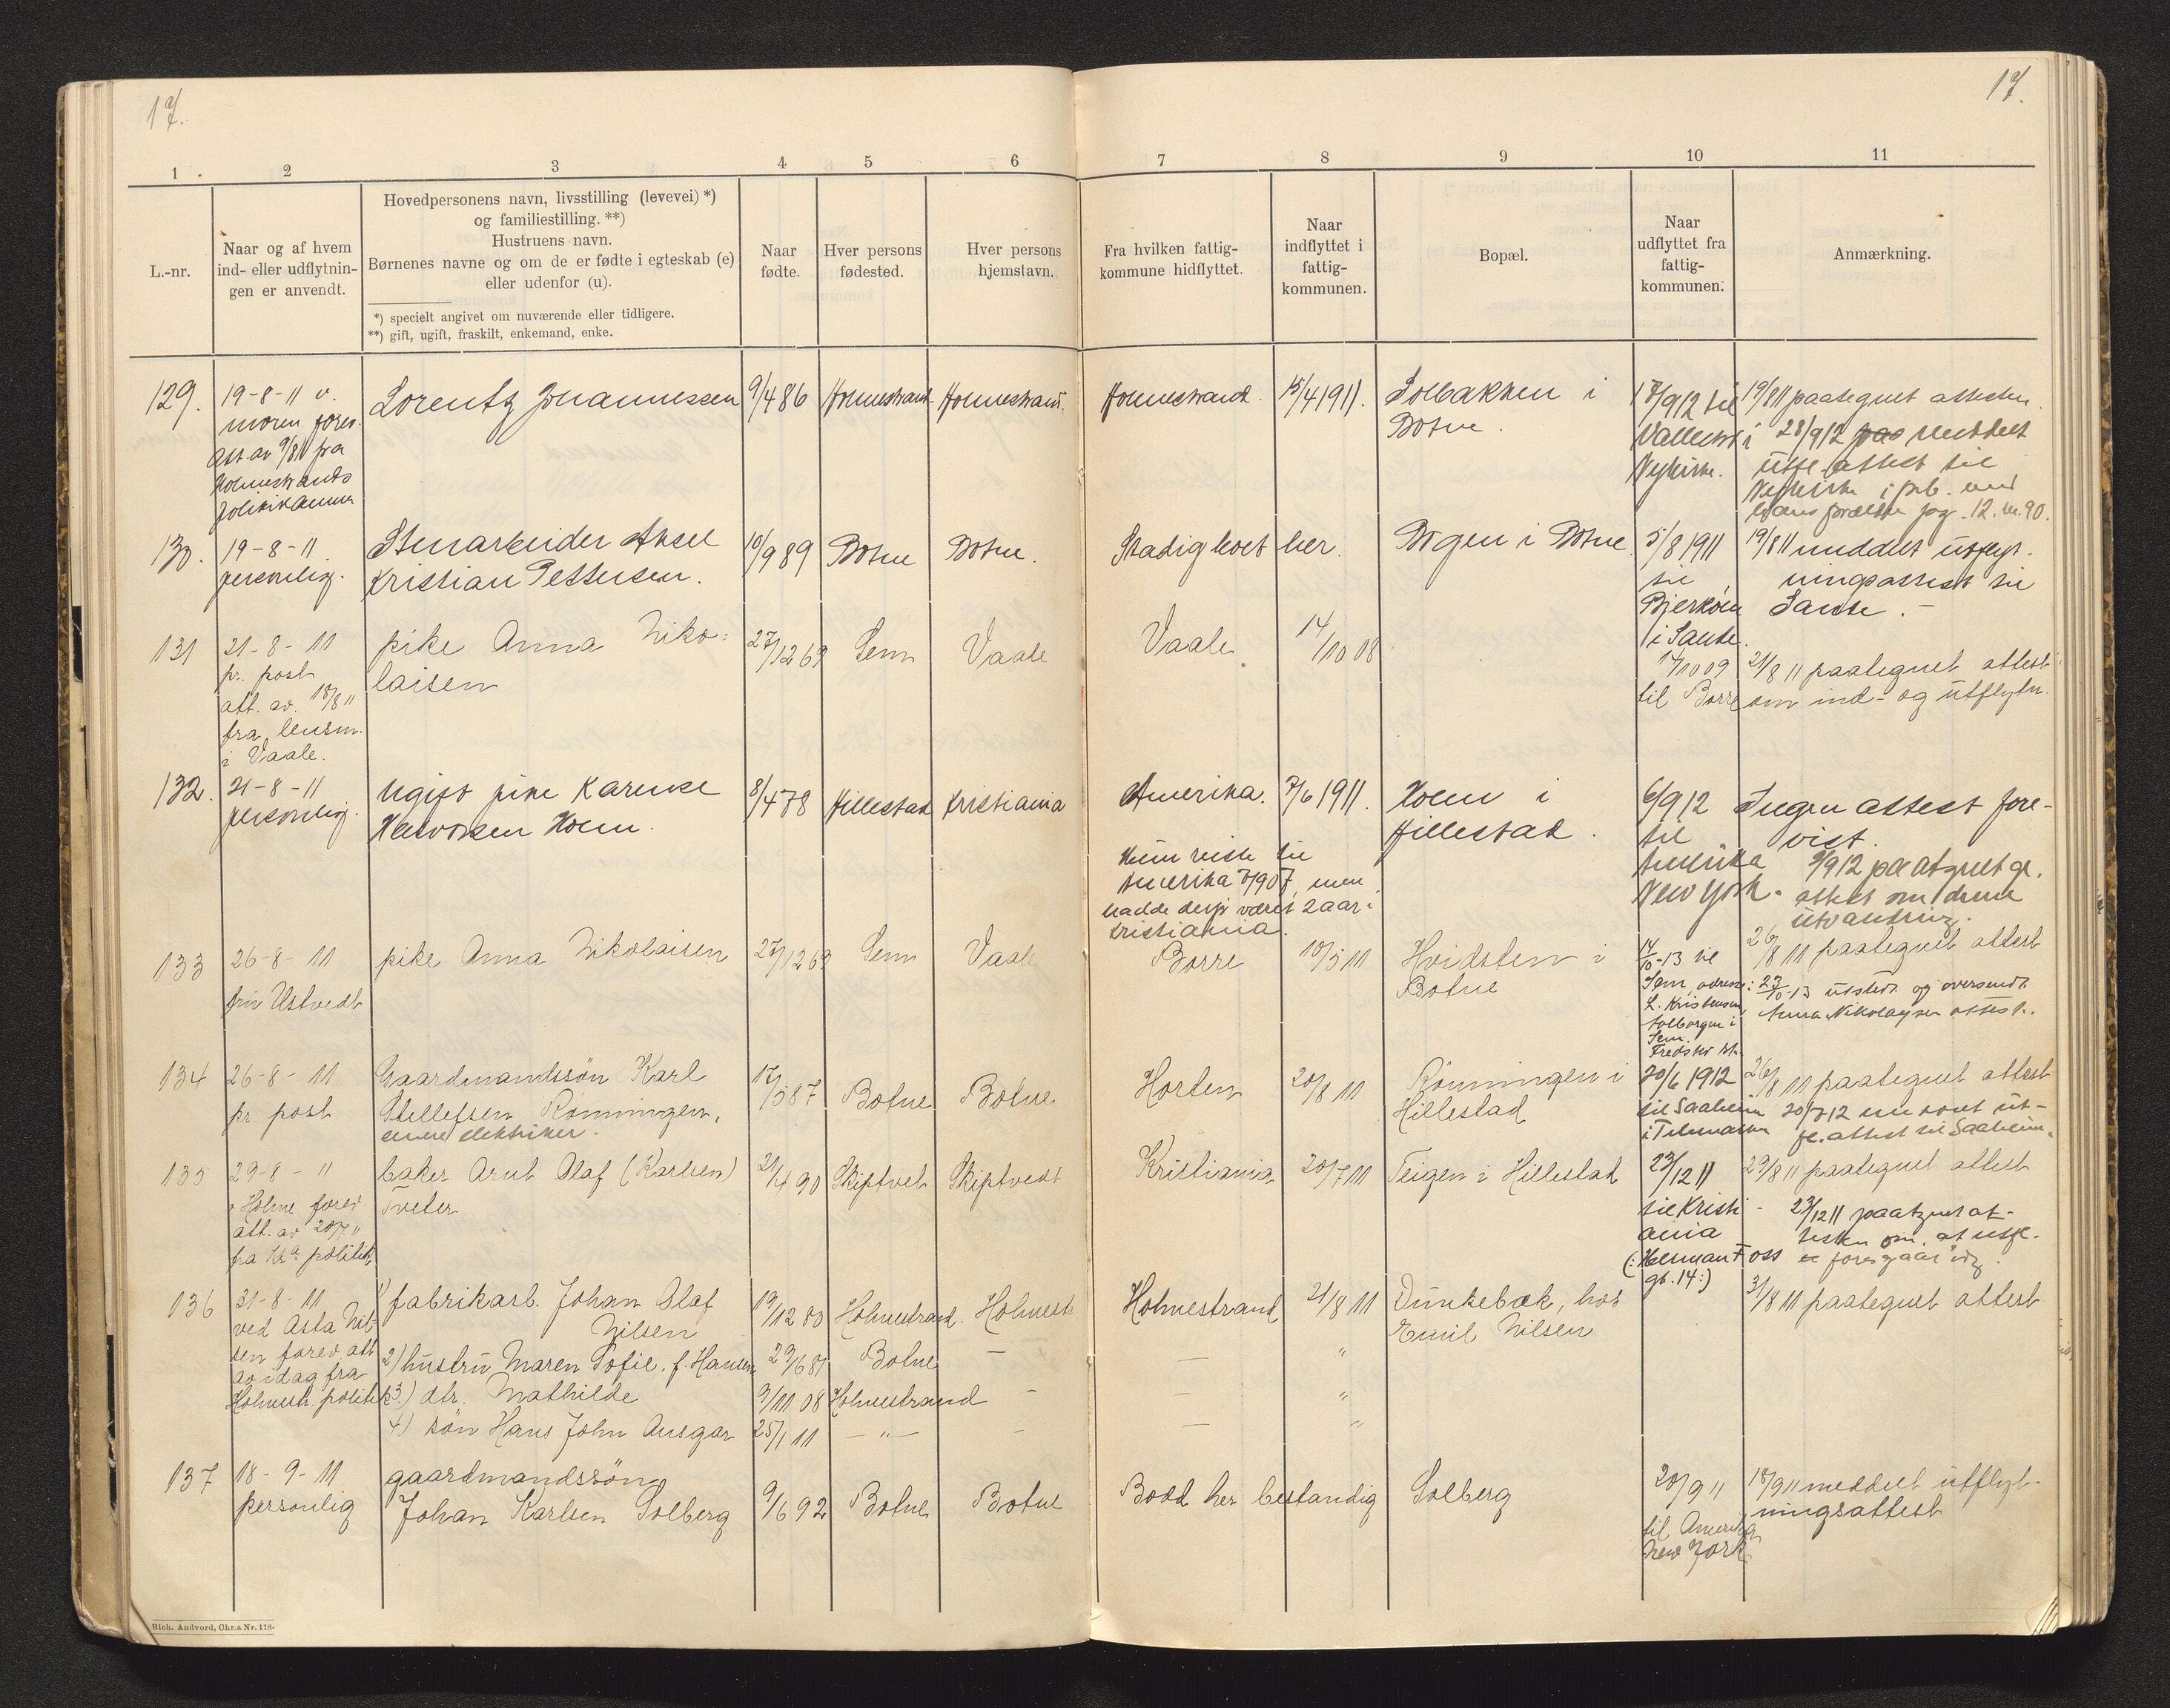 17.
17.
1 2 3 4 5 6 7 8 9 10 11
L.-nr.
Naar og af hvem
ind- eller udflytnin-
gen er anvendt.
Hovedpersonens navn, livsstilling (levevei) *)
og familiestilling. **)
Hustruens navn.
Børnenes navne og om de er fødte i egteskab (e)
eller udenfor (u).
*) specielt angivet om nuværende eller tidligere.
**) gift, ugift, fraskilt, enkemand, enke.
Naar
fødte.
Hver persons
fødested.
Hver persons
hjemstavn.
Fra hvilken fattig-
kommune hidflyttet.
Naar
indflyttet i
fattig-
kommunen.
Bopæl.
Naar
udflyttet fra
fattig-
kommunen.
Anmærkning.
129.
19-8-11 v.
moren forev.
att av 9/8 11 fra
Holmestrands
politikammer
Lorentz Johannessen
9/4 86
Holmestrand
Holmestrand.
Holmestrand.
15/4 1911.
Solbakken i
Botne.
/9 12 til
i
Nykirke.
19/8 11 paategnet attesten.
28/9 12 meddelt
utfl. attest til
Nykirke
pag. 12. nr. 90.
130.
19-8-11
personlig.
Stenarbeider Aksel
Kristian Pettersen.
10/9 89
Botne
Botne.
Stadig boet her.
Bogen i Botne.
5/8 1911
til
Bjerkøen
i Sande.
19/8 11 meddelt utflyt-
ningsattest til
Sande. -
131
21-8-11
pr. post
att. av. 18/8 11
fra lensm.
i Vaale.
pike Anna Niko-
laisen
27/12 69
Sem
Vaale
Vaale
14/10 08
/10 09
til Borre
21/8 11 paategnet attest
om ind- og utflytn.
132.
21-8-11
personlig.
Ugift pike Karense
Halvorsen Hoem.
8/4 78
Hillestad
Kristiania
Amerika.
Hun reiste til
Amerika 7/9 07, men
hadde været 2 aar i
Kristiania.
7/6 1911.
Hoem i
Hillestad.
6/9 12
til
Amerika
New York.
Ingen attest fore-
vist.
/9 12 paategnet gl.
attest om denne
utvandring.
133
26-8-11
fru Ustvedt
pike Anna Nikolaisen
27/12 69
Sem
Vaale
Borre
10/5 11
Hvidsten i
Botne
14/10-13 til
Sem, adresse:
L. Kristensen
Solborgen i
Sem.
26/8 11 paategnet attest
23/10-13 utstedt og oversendt
Anna Nikolaysen attest.
134
26-8-11
pr. post
Gaardmandssøn Karl
Stellefsen Rønningen,
senere elektriker.
17/5 87
Botne
Botne
Horten
20/8 11
Rønningen i
Hillestad
20/6 1912
til Saaheim
i Telemarken
26/8 11 paategnet attest
20/7 12 ut-
fl. attest til Saaheim.
135
29-8-11
v Holme forev.
att. av 20/7 11
fra Kr.a politik.
baker Arnt Olaf (Karlsen)
Tveter
21/4 90
Skiptvet
Skiptvedt
Kristiania
20/7 11
Teigen i Hillestad
23/12 11
til Kristi-
ania
(: Herman Foss
gt. 14:)
29/8 11 paategnet attest
23/12 11 paategnet at-
testen om, at utfl.
foregaar idag.
136
31-8-11
ved Asta Nil-
sen forev. att
av idag fra
Holmestr. politik.
1) fabrikarb. Johan Olaf
Nilsen
2) hustru Maren Sofie, f. Hansen
3) dtr. Mathilde
4) søn Hans John Ansgar
19/12 80
29/6 81
9/11 08
25/1 11
Holmestrand.
Botne
Holmestrand
— " —
Holmestr
—
-
-
Holmestrand
—
—
—
21/8 11
"
"
"
Dunkebæk, hos
Emil Nilsen
31/8 11 paategnet attest
137
18-9-11
personlig
gaardmandssøn
Johan Karlsen Solberg
9/6 92
Botne
Botne
Bodd her bestandig
Solberg
20/9 11
til Amerika
New York
18/9 11 meddelt utflyt-
ningsattest
Rich. Andvord, Chr.a Nr. 118.